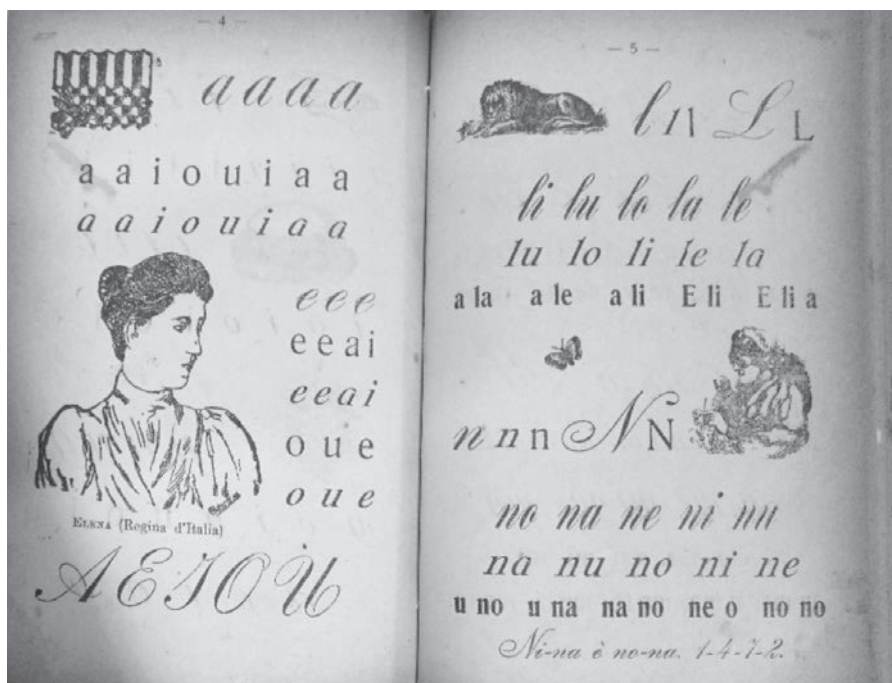 — 4 —
a a a a
a a i o u i a a
a a i o u i a a
e e e
e e a i
e e a i
o u e
o u e
ELENA (Regina d'Italia)
A E I O U
— 5 —
l l l L L
li lu lo la le
lu lo li le la
a la a le a li E li E li a
n n n N N
no na ne ni nu
na nu no ni ne
u no u na na no ne o no no
Ni-na è no-na. 1-4-7-2.